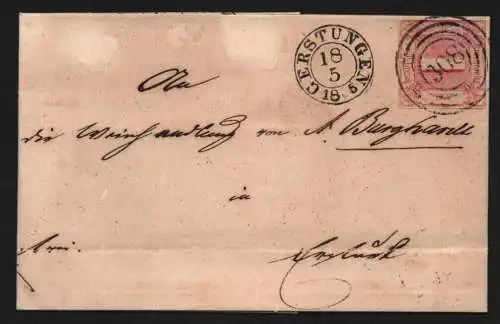 GERSTUNGEN
18
5
308
An
die Weinhandlung von A. Burghardt
in
frei.
Erfurt